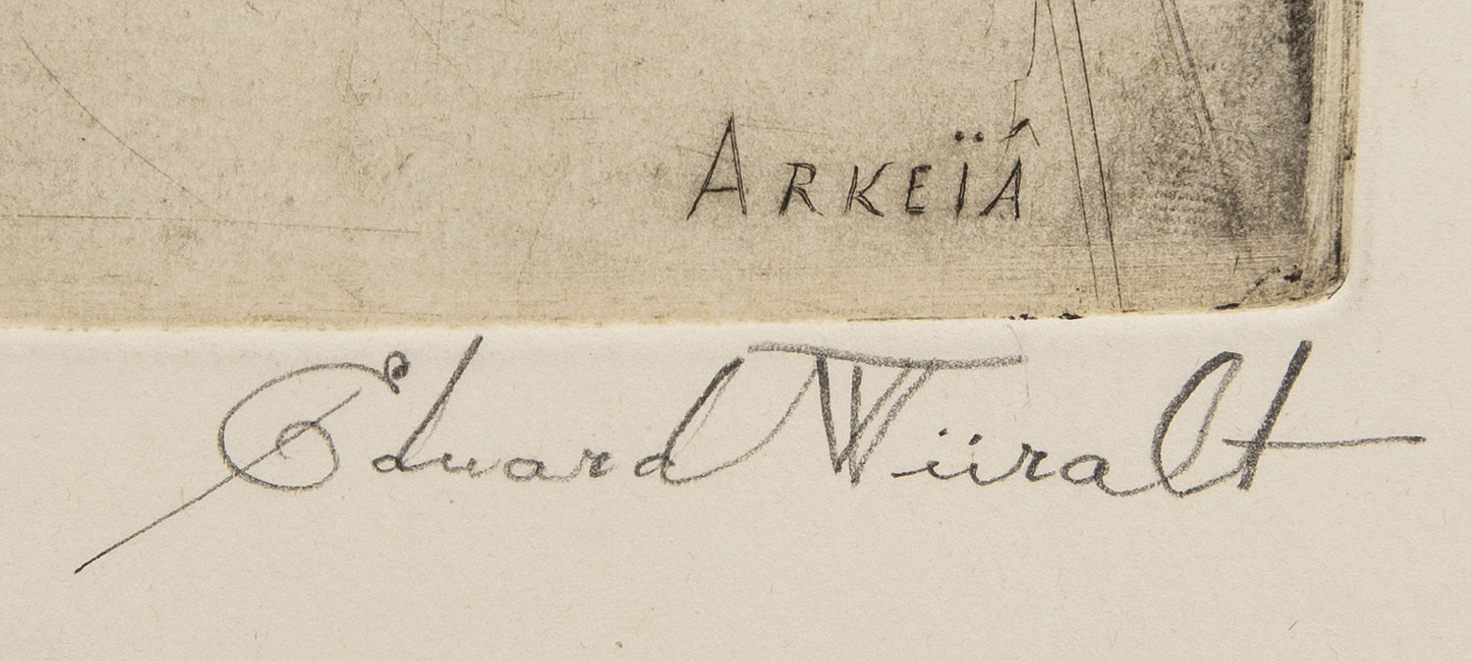 ARKEÏÂ
Eduard Wiiralt